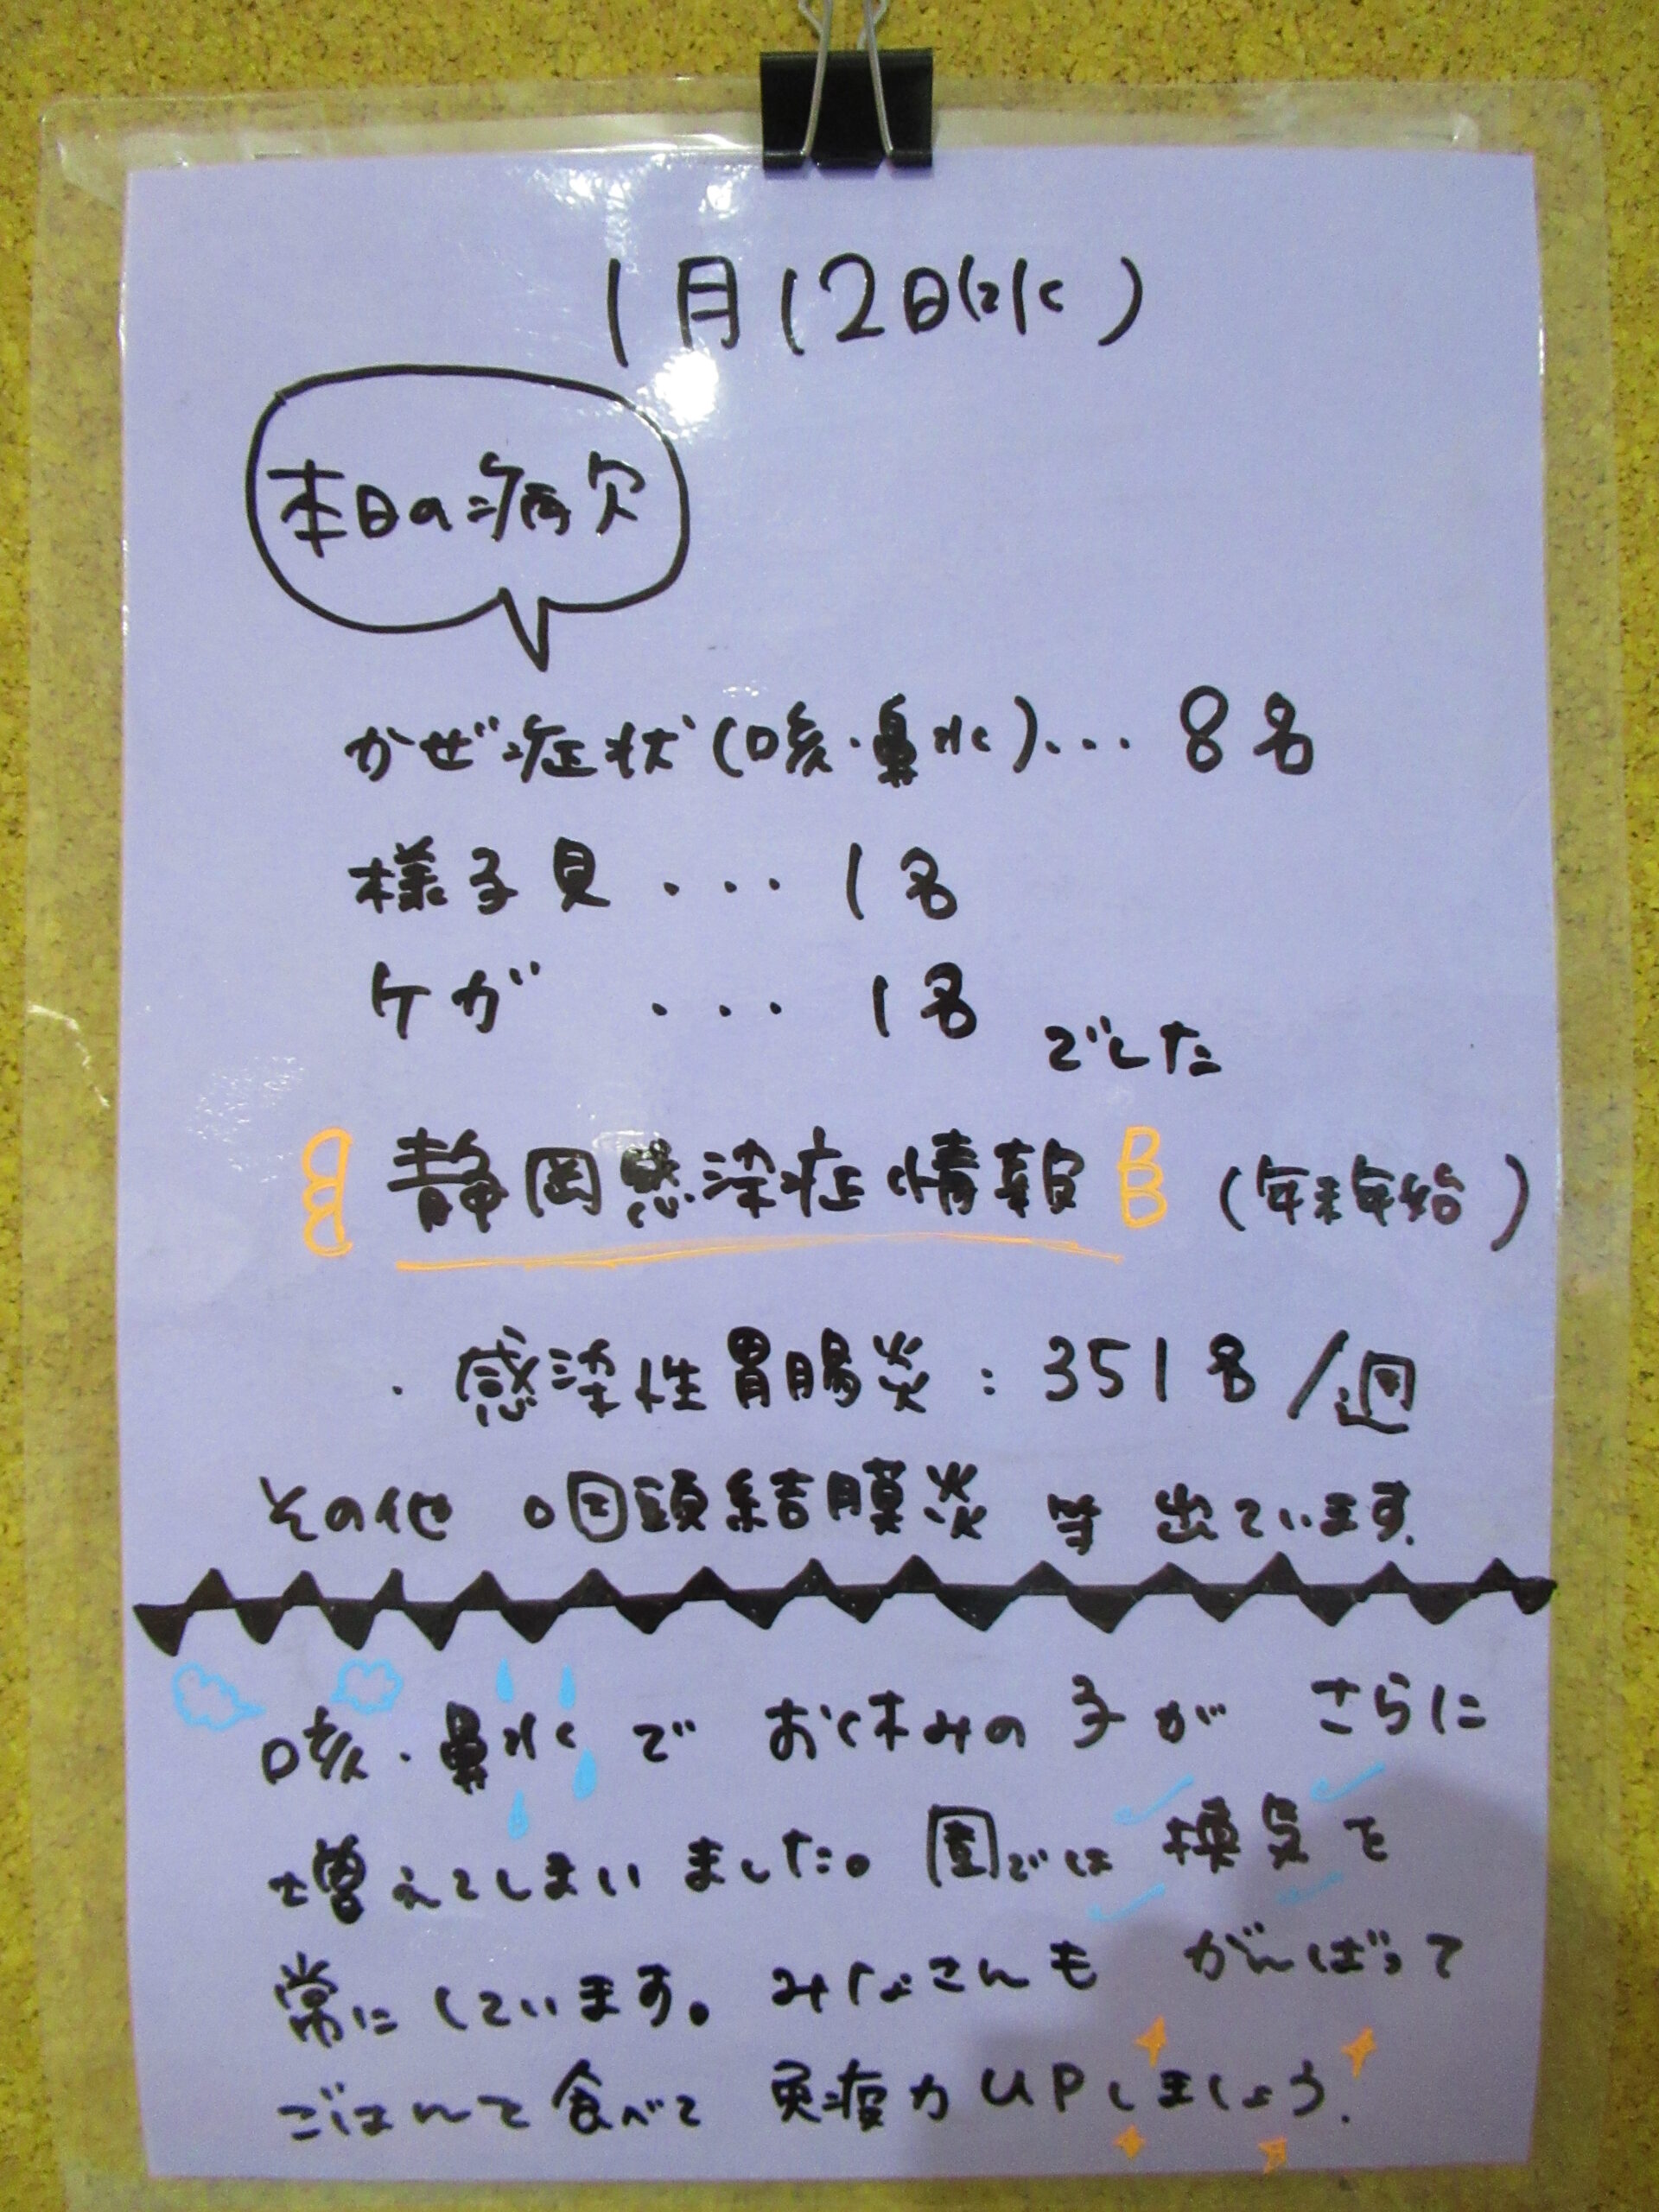 1月12日(水)
本日の病欠
かぜ症状(咳・鼻水)... 8名
様子見 ・・・ 1名
ケガ ・・・ 1名 でした
静岡感染症情報 (年末年始)
・感染性胃腸炎：351名/週
その他 咽頭結膜炎 等 出ています.
咳・鼻水で お休みの子が さらに
増えてしまい ました。園では 換気を
常にしています。みなさんも がんばって
ごはんを食べて 免疫力UPしましょう.